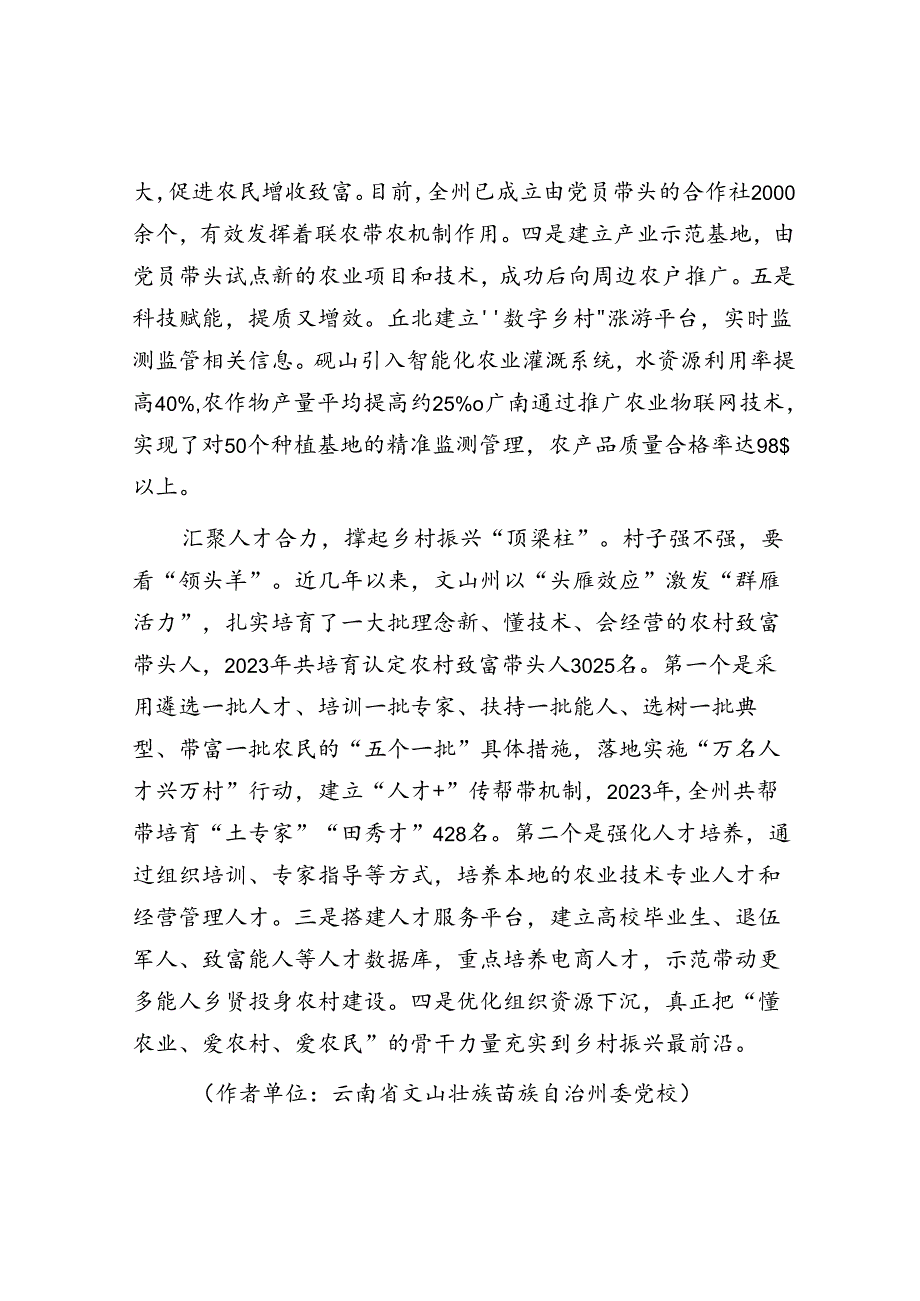 大,促进农民增收致富。目前,全州已成立由党员带头的合作社2000
余个，有效发挥着联农带农机制作用。四是建立产业示范基地，由
党员带头试点新的农业项目和技术，成功后向周边农户推广。五是
科技赋能，提质又增效。丘北建立''数字乡村"涨游平台，实时监
测监管相关信息。砚山引入智能化农业灌溉系统，水资源利用率提
高40%,农作物产量平均提高约25%o广南通过推广农业物联网技术，
实现了对50个种植基地的精准监测管理，农产品质量合格率达98$
以上。
汇聚人才合力，撑起乡村振兴“顶梁柱”。村子强不强，要
看“领头羊”。近几年以来，文山州以“头雁效应”激发“群雁
活力”，扎实培育了一大批理念新、懂技术、会经营的农村致富
带头人，2023年共培育认定农村致富带头人3025名。第一个是采
用遴选一批人才、培训一批专家、扶持一批能人、选树一批典
型、带富一批农民的“五个一批”具体措施，落地实施“万名人
才兴万村”行动，建立“人才+”传帮带机制，2023年,全州共帮
带培育“土专家”“田秀才”428名。第二个是强化人才培养，通
过组织培训、专家指导等方式，培养本地的农业技术专业人才和
经营管理人才。三是搭建人才服务平台，建立高校毕业生、退伍
军人、致富能人等人才数据库，重点培养电商人才，示范带动更
多能人乡贤投身农村建设。四是优化组织资源下沉，真正把“懂
农业、爱农村、爱农民”的骨干力量充实到乡村振兴最前沿。
（作者单位：云南省文山壮族苗族自治州委党校）